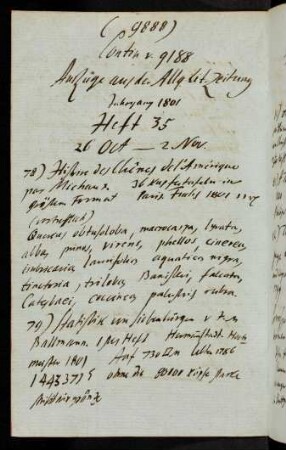 (9888)
Contin v. 9188
Auszüge aus der Allg. Lit. Zeitung
Jahrgang 1801
Heft 35
26 Oct — 2 Nov.
78) Histoire des Chênes de l'Amérique
par Michaux. 36 Kupfertafeln in
größtem Format Paris 1801
(vortrefflich)
Quercus obtusiloba, macrocarpa, lyrata,
alba, prinus, virens, phellos, cinerea,
imbricaria laurifolia aquatica nigra,
tinctoria, triloba, Banisteri, falcata,
Catesbaei, coccinea palustris rubra.
79) Statistik von Siebenbürgen v.
Ballmann. 1stes Heft Hermannstadt
1801 Auf 730 □m
1443371 ohne die 50000 Köpfe starke